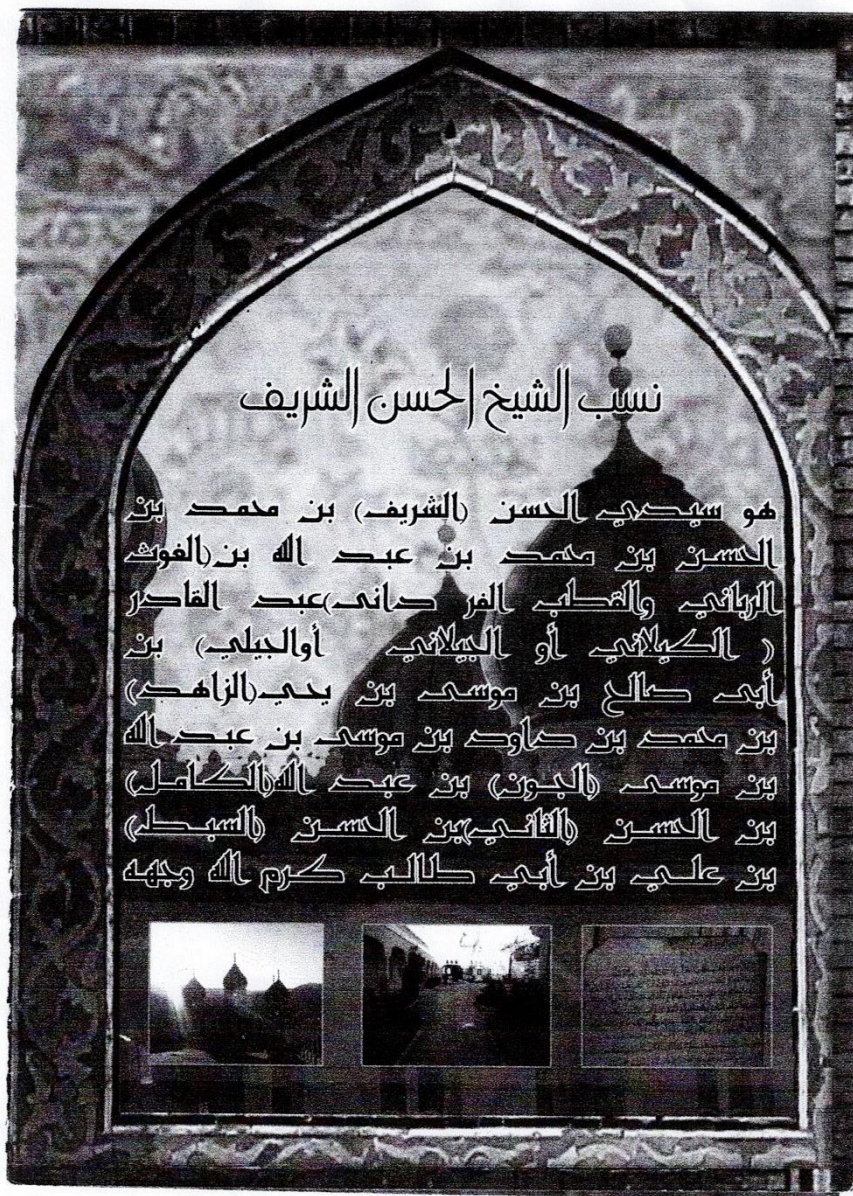 نسب الشيخ الحسن الشريف
هو سيدي الحسن (الشريف) بن محمد بن
الحسن بن محمد بن عبد الله بن(الغوث
الرباني والقطب الفر داني)عبد القادر
( الكيلاني أو الجيلاني أوالجيلي) بن
أبي صالح بن موسى بن يحي(الزاهد)
بن محمد بن داود بن موسى بن عبد الله
بن موسى (الجون) بن عبد الله(الكامل)
بن الحسن (الثاني)بن الحسن (السبط)
بن علي بن أبي طالب كرم الله وجهه